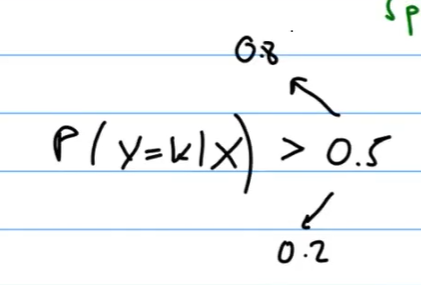 Sp
0.8
P(y=k|X) > 0.5
0.2